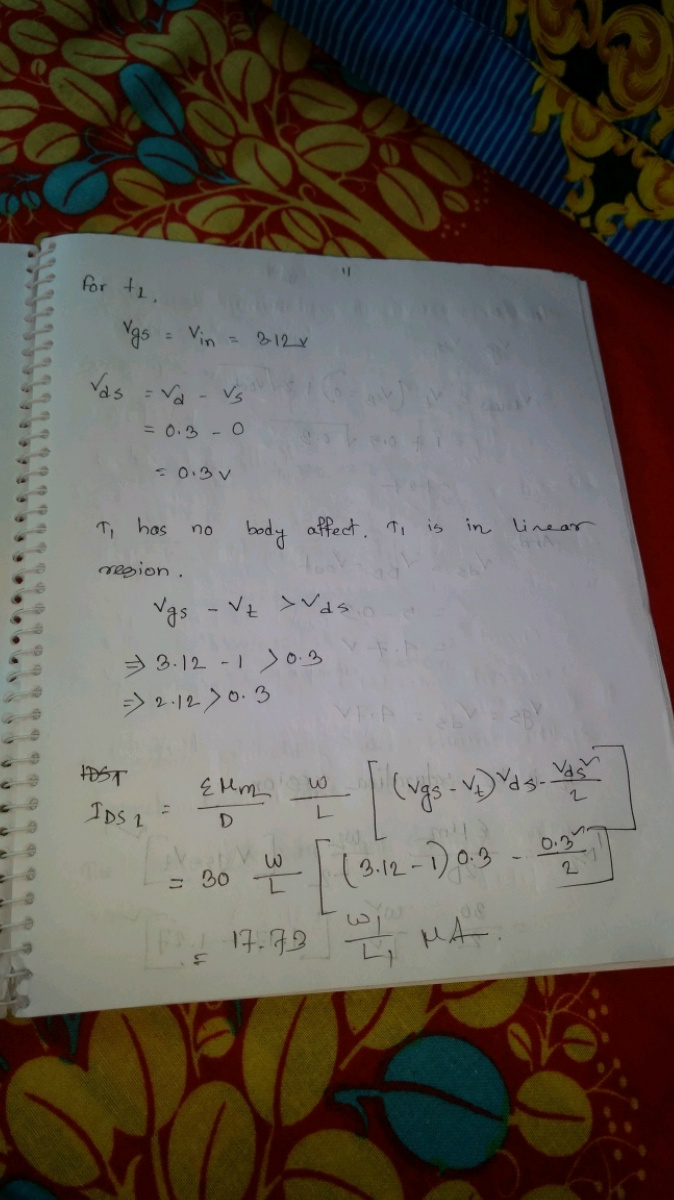 11
For t1,
Vgs = Vin = 3.12v
Vds = Vd - Vs
= 0.3 - 0
= 0.3 v
T1 has no body affect. T1 is in linear
region.
Vgs - Vt > Vds
⇒ 3.12 - 1 > 0.3
⇒ 2.12 > 0.3
IDS1 = εμm/D W/L [(Vgs - Vt) Vds - Vds²/2]
= 30 W/L [(3.12 - 1) 0.3 - 0.3²/2]
= 17.73 W1/L1 μA.